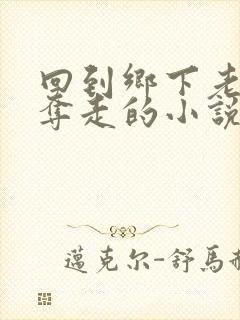 回到鄉下老
奪走的小說
邁克尔-舒馬赫